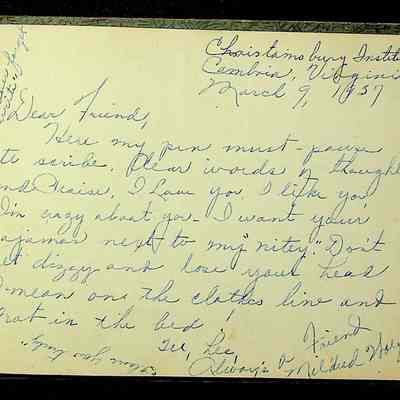 Christiansburg Instit
Cambria, Virginia
March 9, 1937
Dear Friend,
Here my pen must pause
to scribe. Dear words of thought
and Praise. I Love you. I like you
I'm crazy about you. I want your
ajamas next to my "nitey." Don't
et dizzy and lose your head
I mean on the clothes line and
not in the bed!
Tee, Hee,
Always a Friend
Mildred